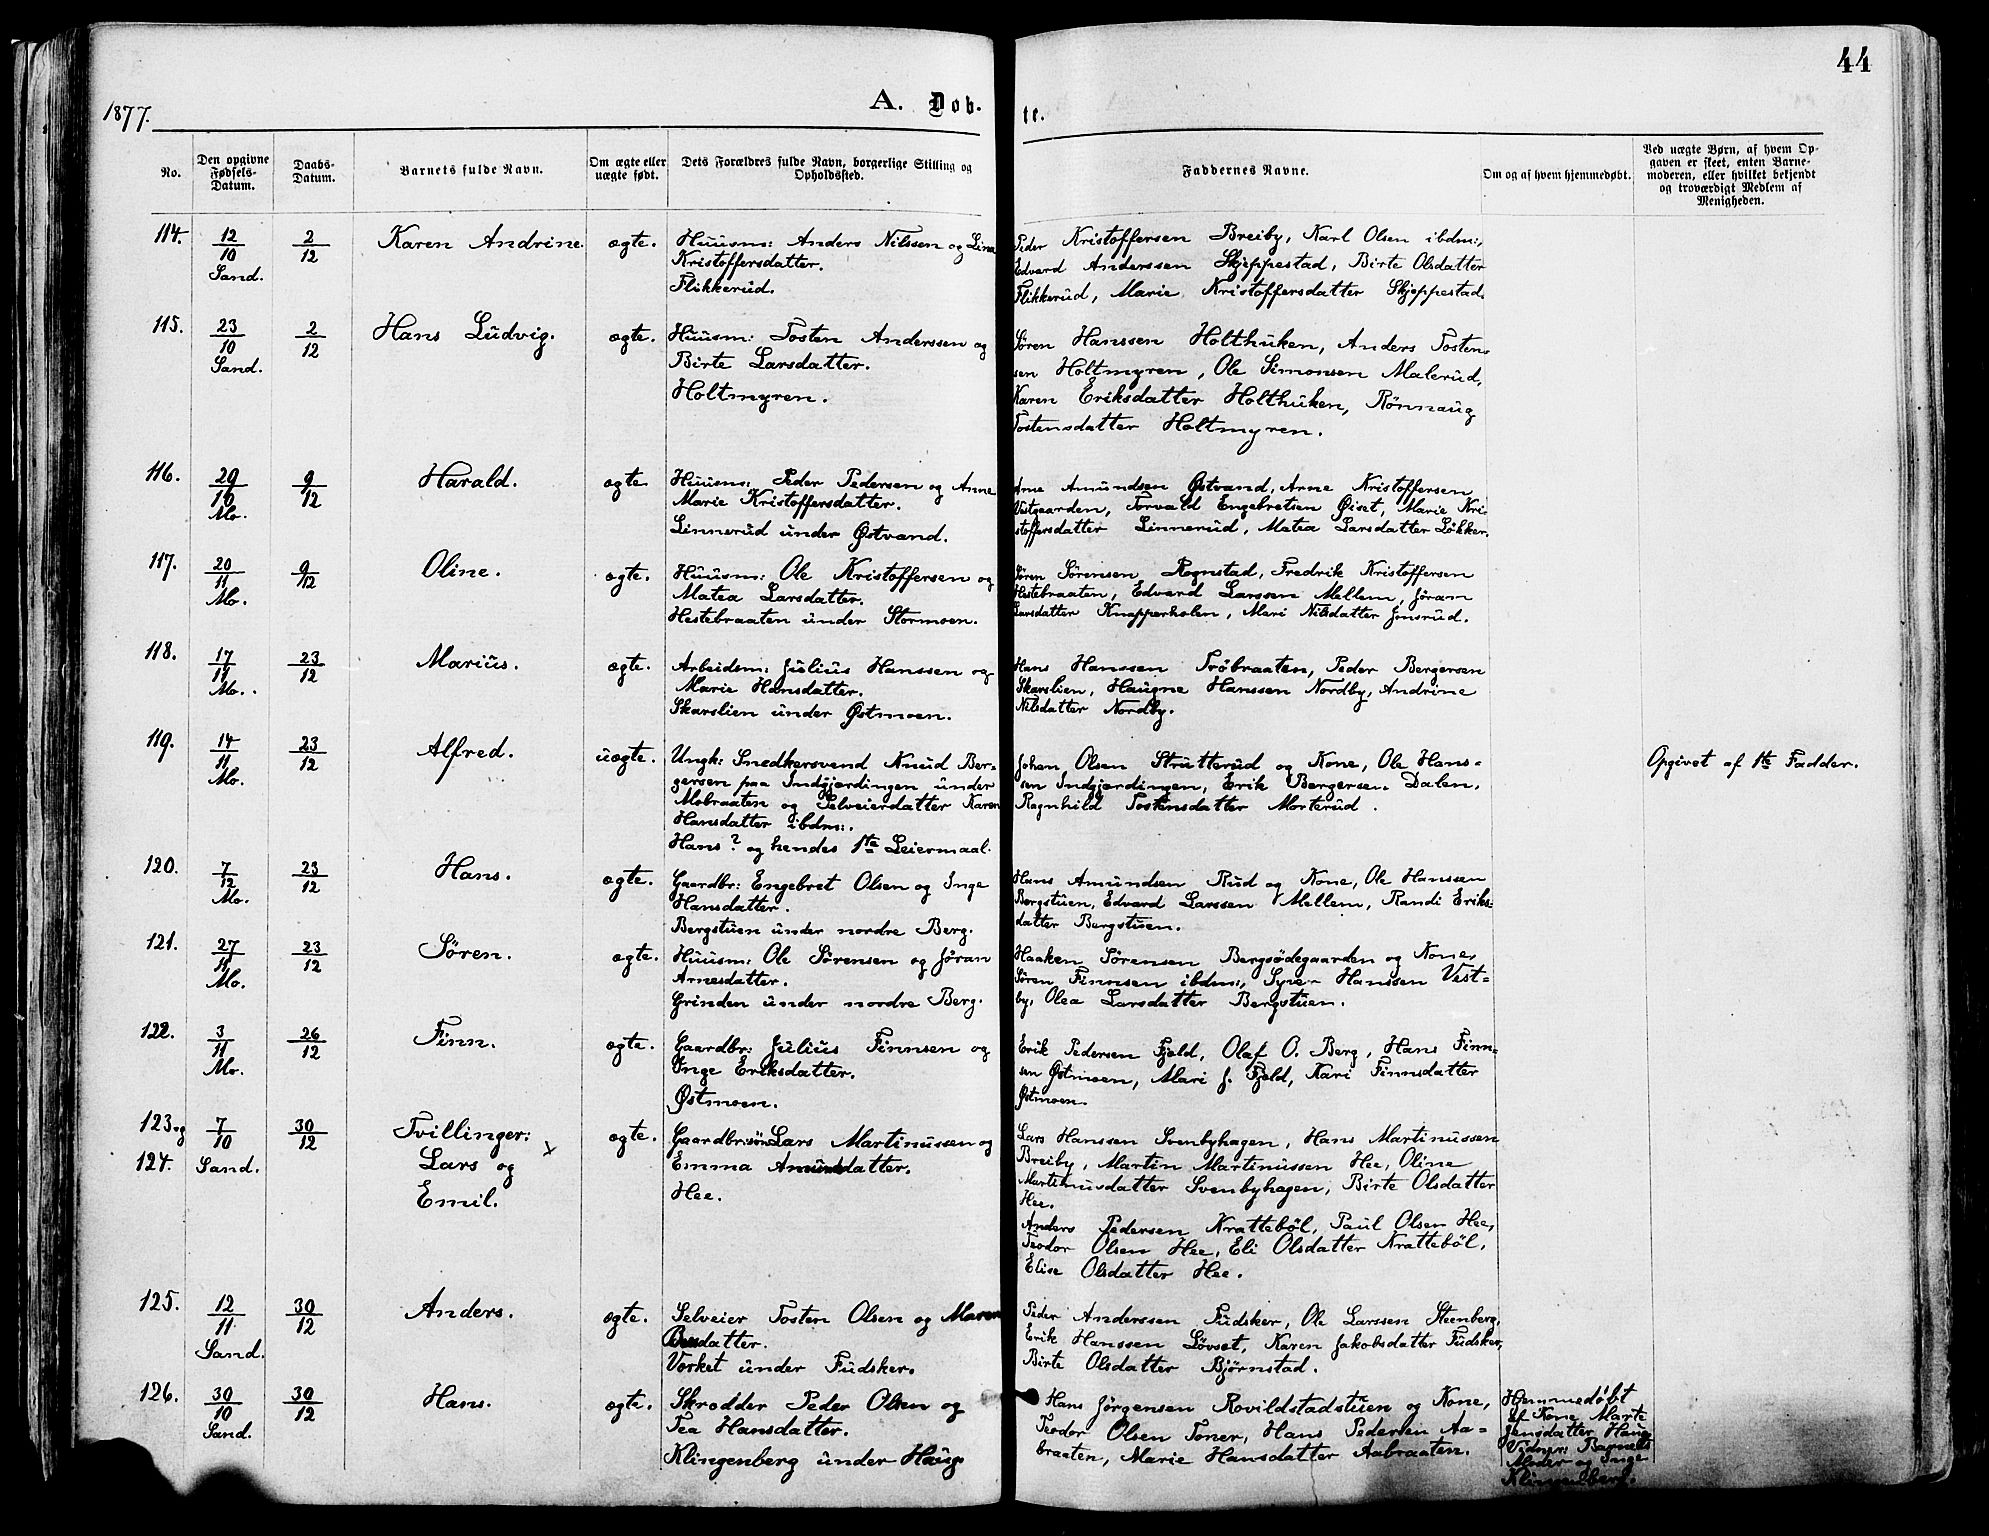 44
1877.
A. Døb-
te.
No.
Den opgivne Fødsels-Datum.
Daabs-Datum.
Barnets fulde Navn.
Om ægte eller uægte født.
Dets Forældres fulde Navn, borgerlige Stilling og Opholdssted.
Faddernes Navne.
Om og af hvem hjemmedøbt.
Ved uægte Børn, af hvem Opgaven er skeet, enten Barnemoderen, eller hvilket bekjendt og troværdigt Medlem af Menigheden.
114. 12/10 Sand. 2/12 Karen Andrine. ægte.
Huusm: Anders Nilssen og Lina
Kristoffersdatter.
Flikkerud.
Peder Kristoffersen Breiby, Karl Olsen ibdm:,
Edvard Anderssen Skjeppestad, Birte Olsdatter
Flikkerud, Marie Kristoffersdatter Skjeppestad.
115. 23/10 Sand. 2/12 Hans Ludvig. ægte.
Huusm: Tosten Anderssen og
Birte Larsdatter.
Holtmyren.
Søren Hanssen Holthuken, Anders Tosten-
sen Holtmyren, Ole Simonsen Malerud,
Karen Eriksdatter Holthuken, Rønnaug
Tostensdatter Holtmyren.
116. 29/10 Mo. 9/12 Harald. ægte.
Huusm: Peder Pedersen og Anne
Marie Kristoffersdatter.
Linnerud under Østvand.
Arne Amundsen Østvand, Arne Kristoffersen
Vestgaarden, Torvald Engebretsen Øiset, Marie Kri-
stoffersdatter Linnerud, Matea Larsdatter Løkker.
117. 20/11 Mo. 9/12 Oline. ægte.
Huusm: Ole Kristoffersen og
Matea Larsdatter.
Hestebraaten under Stormoen.
Søren Sørensen Rognstad, Fredrik Kristoffersen
Hestebraaten, Edvard Larssen Mellem, Jøran
Larsdatter Knapperholen, Mari Nilsdatter Jonsrud.
118. 17/11 Mo. 23/12 Marius. ægte.
Arbeidsm: Julius Hanssen og
Marie Hansdatter.
Skarslien under Østmoen.
Hans Hanssen Trøbraaten, Peder Bergersen
Skarslien, Haugne Hanssen Nordby, Andrine
Nilsdatter Nordby.
119. 14/11 Mo. 23/12 Alfred. uægte.
Ungk: Snedkersvend Knud Ber-
gersen paa Indgjerdingen under
Mobraaten og Selveierdatter Karen
Hansdatter ibdm:.
Hans ? og hendes 1ste Leiermaal.
Johan Olsen Strutterud og Kone, Ole Hans-
sen Indgjerdingen, Erik Bergersen Dalen,
Ragnhild Tostensdatter Morterud.
Opgivet af 1ste Fadder.
120. 7/12 Mo. 23/12 Hans. ægte.
Gaardbr: Engebret Olsen og Inge
Hansdatter.
Bergstuen under nordre Berg.
Hans Amundsen Rud og Kone, Ole Hanssen
Bergstuen, Edvard Larssen Mellem, Randi Eriks-
datter Bergstuen.
121. 27/11 Mo. 23/12 Søren. ægte.
Huusm: Ole Sørensen og Jøran
Arnesdatter.
Grinden under nordre Berg.
Haaken Sørensen Bergsødegaarden og Kone,
Søren Finnsen ibdm:, Syver Hanssen Vest-
by, Olea Larsdatter Bergstuen.
122. 3/11 Mo. 26/12 Finn. ægte.
Gaardbr: Julius Finnsen og
Inge Eriksdatter.
Østmoen.
Erik Pedersen Fjeld, Olaf O. Berg, Hans Finn-
sen Østmoen, Mari J. Fjeld, Kari Finnsdatter
Østmoen.
123 og 124. 7/10 Sand. 30/12 Tvillinger:
Lars og
Emil. ægte.
Gaardbr:søn Lars Martinussen og
Emma Amundsdatter.
Hee.
Lars Hanssen Svenbyhagen, Hans Martinussen
Breiby, Martin Martinussen Hee, Oline
Martinusdatter Svenbyhagen, Birte Olsdatter
Hee.
Anders Pedersen Krattebøl, Paul Olsen Hee,
Teodor Olsen Hee, Eli Olsdatter Krattebøl,
Elise Olsdatter Hee.
125. 12/11 Sand. 30/12 Anders. ægte.
Selveier Tosten Olsen og Maren
Vorket under Fudsker.
Peder Anderssen Fudsker, Ole Larssen Steenberg,
Erik Hanssen Løvset, Karen Jakobsdatter Fudsker,
Birte Olsdatter Bjørnstad.
126. 30/10 Sand. 30/12 Hans. ægte.
Skrædder Peder Olsen og
Tea Hansdatter.
Klingenberg under Haug.
Hans Jørgensen Rovildstadstuen og Kone,
Teodor Olsen Toner, Hans Pedersen Aa-
braaten, Marie Hansdatter Aabraaten.
Hjemmedøbt
af Kone Marte
Jensdatter Haug
Vidner: Barnets
Moder og Inge
Klingenberg.